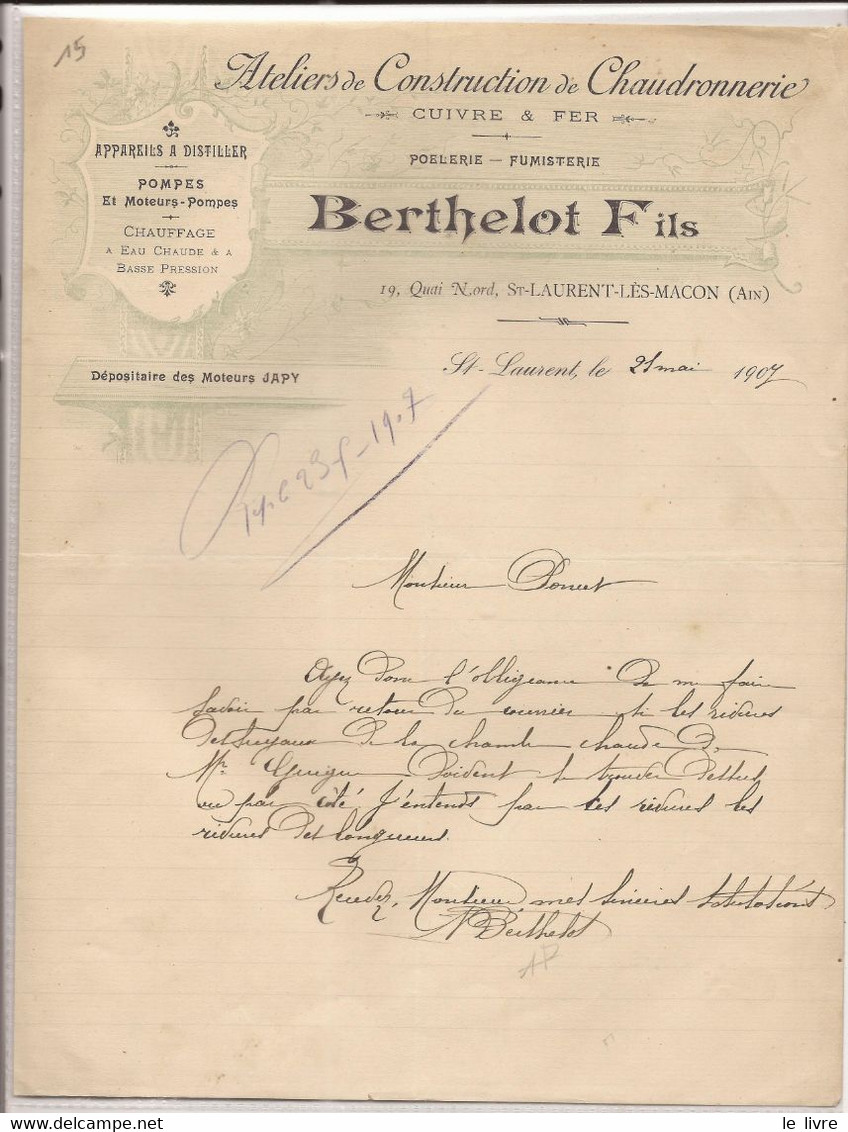 15
Ateliers de Construction de Chaudronnerie
CUIVRE & FER
POELERIE — FUMISTERIE
Berthelot Fils
19, Quai Nord, ST-LAURENT-LÈS-MACON (AIN)
APPAREILS A DISTILLER
POMPES
Et Moteurs-Pompes
CHAUFFAGE
A EAU CHAUDE & A
BASSE PRESSION
Dépositaire des Moteurs JAPY
St-Laurent, le 21 mai 1907
1907
Monsieur
Ayez donc l'obligeance de me faire
savoir par retour du courrier si les rivures
des tuyaux de la chambre chaude de
Mr doivent se trouver dessus
ou par côté. J'entends par ces rivures les
rivures des longueurs.
Recevez, Monsieur, mes sincères salutations
Berthelot
le livre